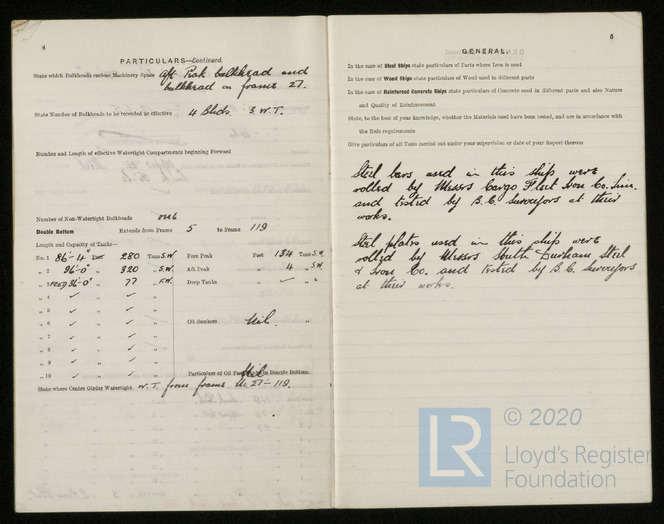 4
PARTICULARS—Continued.
State which Bulkheads enclose Machinery Space Aft Peak bulkhead and
bulkhead on frame 27.
State Number of Bulkheads to be recorded as effective 4 Blhds. 3. W.T.
Number and Length of effective Watertight Compartments beginning Forward
Number of Non-Watertight Bulkheads one
Double Bottom Extends from Frame 5 to Frame 119
Length and Capacity of Tank—
No. 1 86'-4" Feet 280 Tons S.W. Fore Peak Feet 134 Tons S.W.
„ 2 96'-0" „ 320 „ S.W. Aft Peak „ 4 „ S.W.
„ 3 FEED 36'-0" „ 77 „ F.W. Deep Tanks ✓ „ ✓ „
„ 4 ✓ „ ✓ „
„ 5 ✓ „ ✓ „
„ 6 ✓ „ ✓ „ Oil Bunkers Nil.
„ 7 ✓ „ ✓ „
„ 8 ✓ „ ✓ „
„ 9 ✓ „ ✓ „
„ 10 ✓ „ ✓ „ Particulars of Oil Fuel Nil in Double Bottom.
State where Centre Girder Watertight W.T. from frame No 27-119.
5
GENERAL.
In the case of Steel Ships state particulars of Parts where Iron is used
In the case of Wood Ships state particulars of Wood used in different parts
In the case of Reinforced Concrete Ships state particulars of Concrete used in different parts and also Nature
and Quality of Reinforcement
State, to the best of your knowledge, whether the Materials used have been tested, and are in accordance with
the Rule requirements
Give particulars of all Tests carried out under your supervision or date of Report thereon
Steel bars used in this ship were
rolled by Messrs Cargo Fleet Iron Co. Lim.
and tested by B.C. Surveyors at their
works.
Steel plates used in this ship were
rolled by Messrs South Durham Steel
& Iron Co. and tested by B.C. Surveyors
at their works.
LR © 2020
Lloyd's Register
Foundation